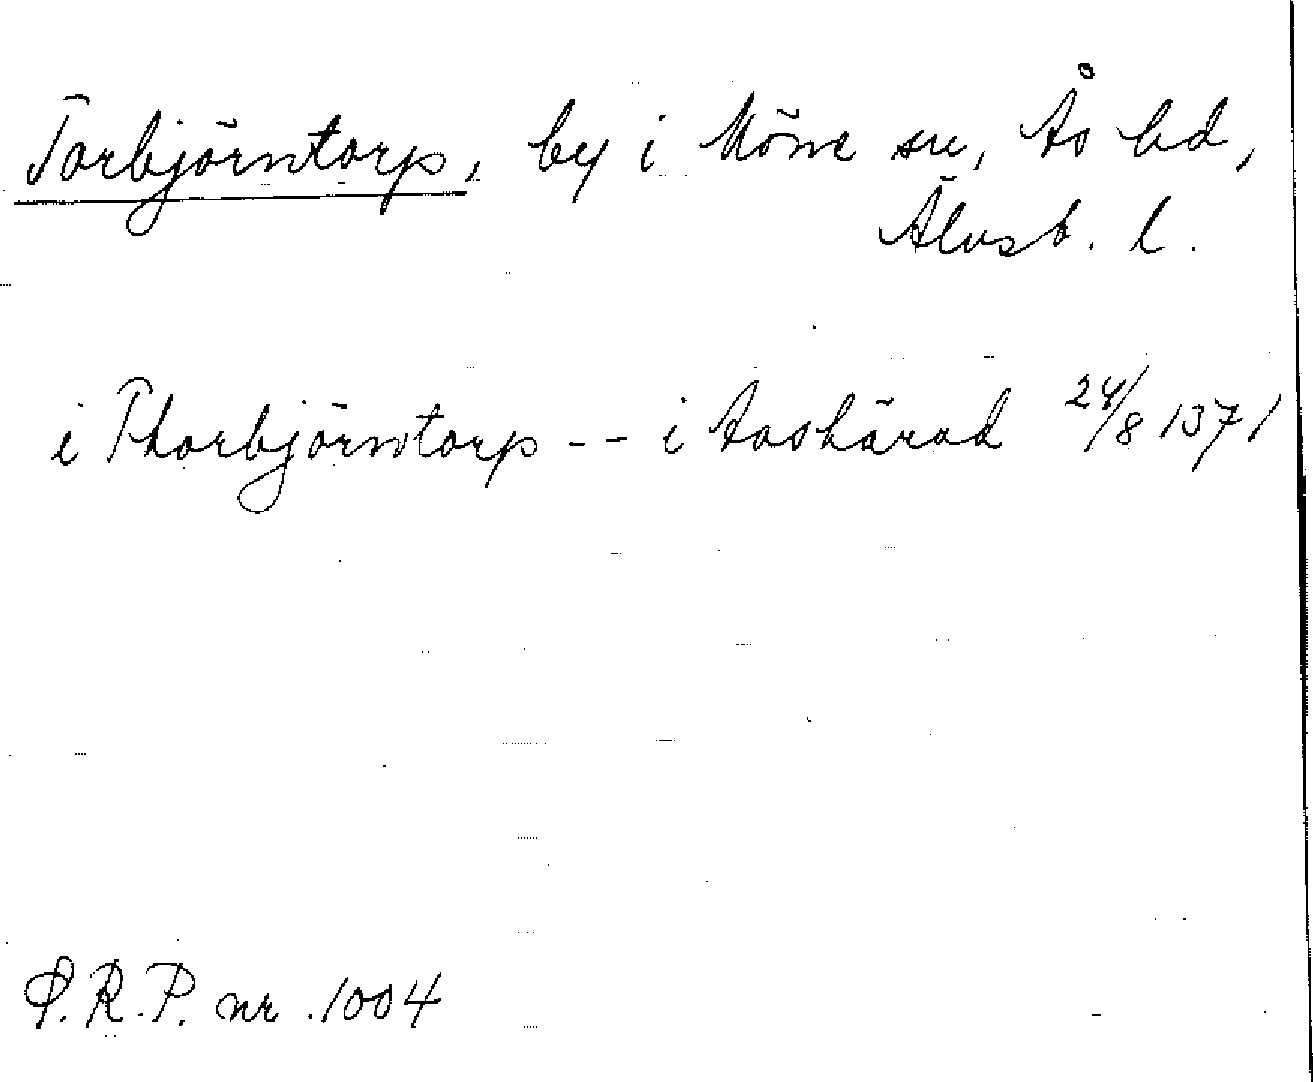 Torbjörntorp, by i Möne sn, Ås hd,
Älvsb. l.
i Thorbjörntorp -- i Aashärad 24/8 1371
P.R.P. nr. 1004